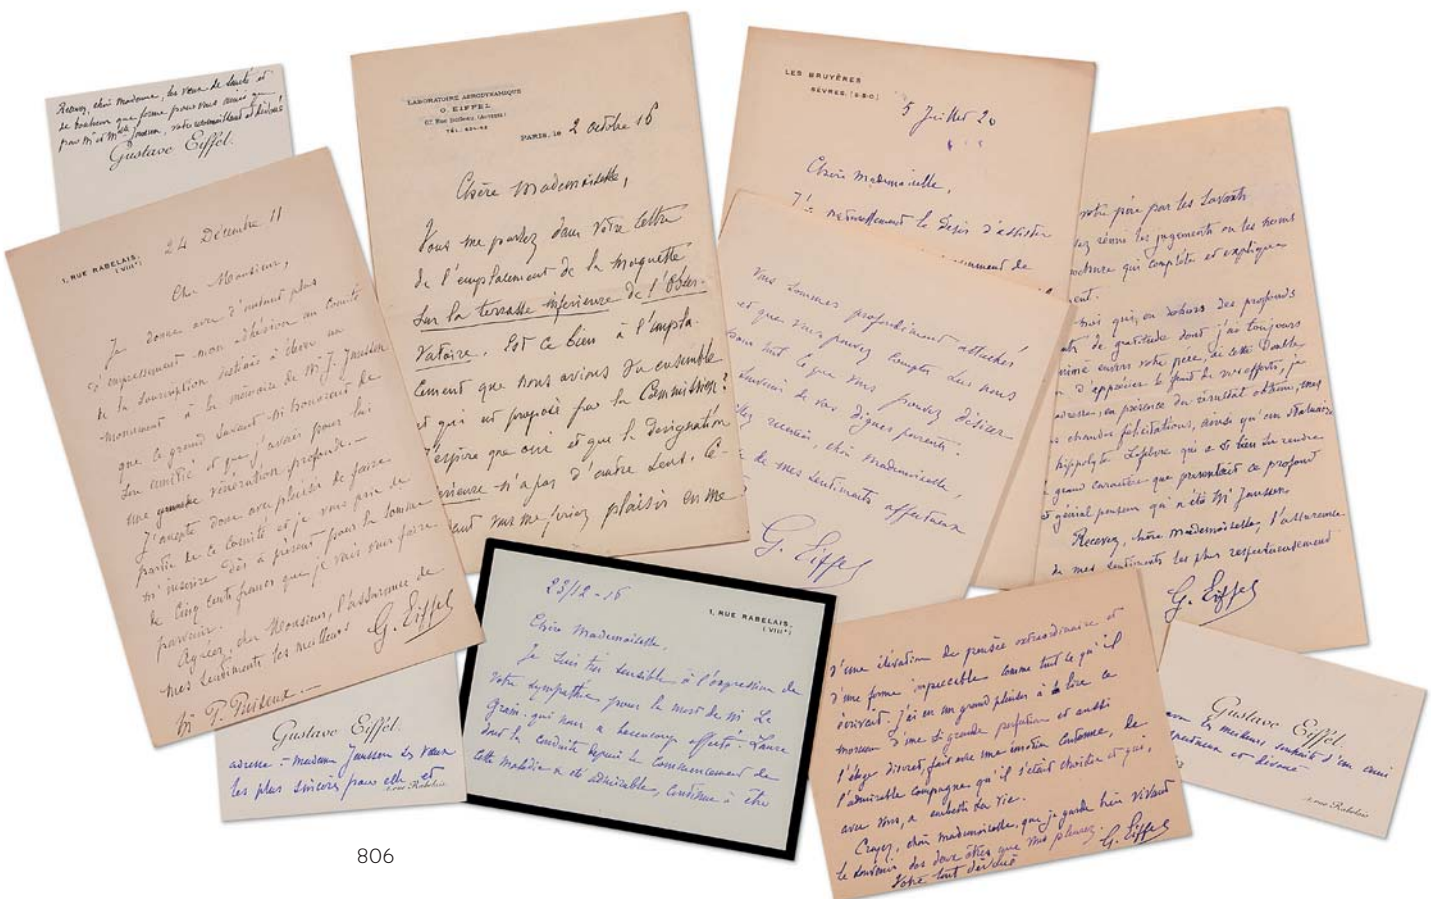 Recevez, chère Madame, les vœux de santé et
de bonheur que forme pour vous ainsi que
pour Mr et Melle Janssen, votre reconnaissant et dévoué
Gustave Eiffel.
1, RUE RABELAIS.
(VIIIe)
24 Décembre 11
Cher Monsieur,
Je donne avec d'autant plus
d'empressement mon adhésion au Comité
de la Souscription destinée à élever un
monument à la mémoire de Mr J. Janssen
que ce grand savant m'honorait de
son amitié et que j'avais pour lui
une vénération profonde.—
J'accepte donc avec plaisir de faire
partie de ce Comité et je vous prie de
m'inscrire dès à présent pour la somme
de Cinq cents francs que je vais vous faire
parvenir.
Agréez, cher Monsieur, l'assurance de
mes sentiments les meilleurs
G. Eiffel
Mr P. Puiseux.—
LABORATOIRE AÉRODYNAMIQUE
G. EIFFEL
67, Rue Boileau (Auteuil)
PARIS, le 2 octobre 16
Chère Mademoiselle,
Vous me parlez dans votre lettre
de l'emplacement de la maquette
sur la terrasse inférieure de l'Obser-
vatoire. Est ce bien à l'empla-
cement que nous avions vu ensemble
et qui est proposé par la Commission?
J'espère que oui et que la désignation
inférieure n'a pas d'autre sens. Ce-
vous me feriez plaisir en me
LES BRUYÈRES
SÈVRES, (S.&O.)
5 Juillet 20
Chère Mademoiselle,
naturellement le désir d'assister
Vous sommes profondément attachés
et que vous pouvez compter sur nous
pour tout ce que vous pouvez désirer
souvenir de vos dignes parents.
recevoir, chère Mademoiselle,
de mes sentiments affectueux
G. Eiffel
votre père par les Savants
réuni les jugements ou les noms
brochure qui complète et explique
moi qui, en dehors des profonds
de gratitude dont j'ai toujours
animé envers votre père, de cette double
d'apprécier le fruit de vos efforts, je
adresse, en présence du résultat obtenu, mes
chaudes félicitations, ainsi qu'au statuaire
Hippolyte Lefebvre qui a si bien su rendre
grand caractère que présentait ce profond
et génial penseur qu'a été Mr Janssen.
Recevez, chère Mademoiselle, l'assurance
de mes sentiments les plus respectueusement
G. Eiffel
Gustave Eiffel.
adresse à Madame Janssen ses vœux
les plus sincères pour elle et
1, rue Rabelais
23/12-16
1, RUE RABELAIS.
(VIIIe)
Chère Mademoiselle,
Je suis très sensible à l'expression de
votre sympathie pour la mort de Mr Le
Grain qui nous a beaucoup affecté. Laure
dont la conduite depuis le commencement de
cette maladie a été admirable, continue à être
d'une élévation de pensée extraordinaire et
d'une forme impeccable comme tout ce qu'il
écrivait. J'ai eu un grand plaisir à lire ce
morceau d'une si grande perfection et aussi
l'éloge discret, fait avec une émotion contenue, de
l'admirable compagne qu'il s'était choisie et qui,
avec vous, a embelli sa vie.
Croyez, chère Mademoiselle, que je garde bien vivant
le souvenir des deux êtres que vous pleurez.
Votre tout dévoué
G. Eiffel
Gustave Eiffel.
avec les meilleurs souhaits d'un ami
respectueux et dévoué
1, rue Rabelais
806